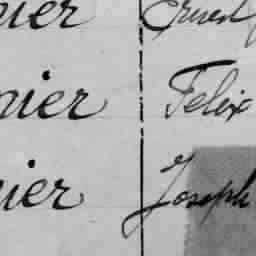 nier Ernest
nier Felix
nier Joseph